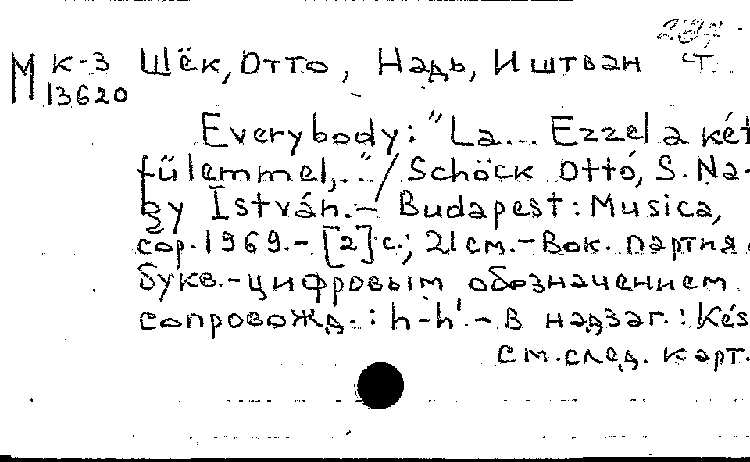 М К-3 Шёк, Отто, Надь, Иштван Ч.
13620
Everybody: "La... Ezzel a két
fülemmel,.." / Schöck Ottó, S. Na-
gy István. – Budapest: Musica,
cop. 1969. – [2] с.; 21 см. – Вок. партия с
букв.-цифровым обозначением
сопровожд.: h-h'. – В надзаг.: Kés
см. след. карт.